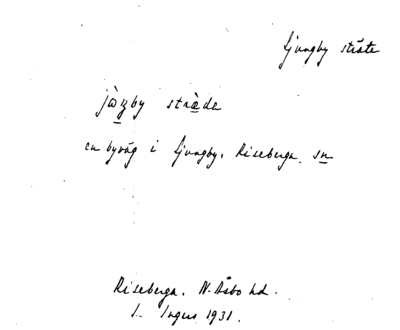 Ljungby sträte
jòŋby stràda
en byväg i Ljungby, Riseberga sn
Riseberga. N. Åsbo hd.
S. Ingers 1931.